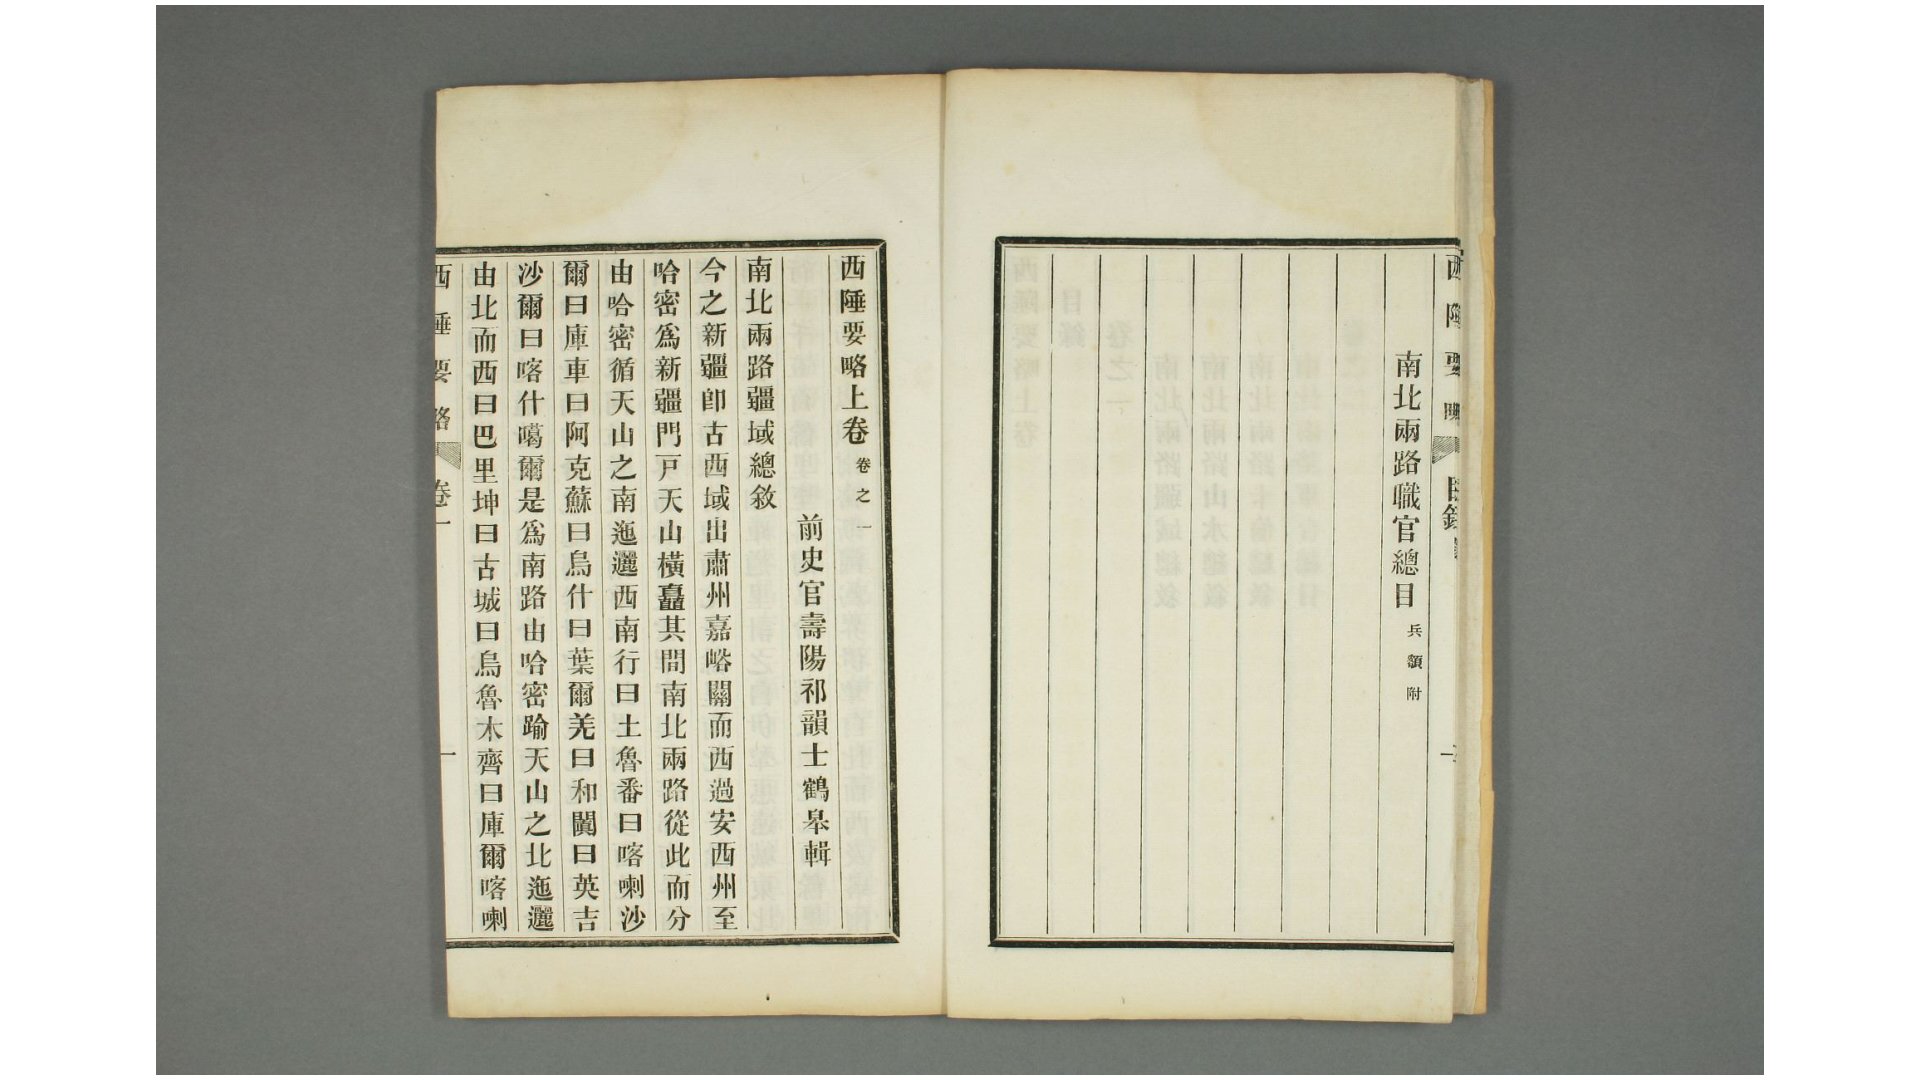 南北兩路職官總目 兵額附
西陲要略上卷 卷之一
前史官壽陽祁韻士鶴皋輯
南北兩路疆域總敘
今之新疆卽古西域出肅州嘉峪關而西過安西州至
哈密爲新疆門戸天山橫矗其間南北兩路從此而分
由哈密循天山之南迤邐西南行曰土魯番曰喀喇沙
爾曰庫車曰阿克蘇曰烏什曰葉爾羌曰和闐曰英吉
沙爾曰喀什噶爾是爲南路由哈密踰天山之北迤邐
由北而西曰巴里坤曰古城曰烏魯木齊曰庫爾喀喇
西陲要略 卷一 一